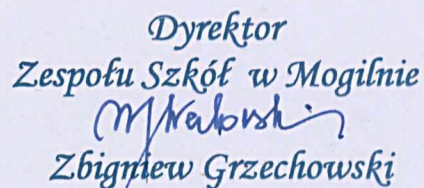 Dyrektor
Zespołu Szkół w Mogilnie
Zbigniew Grzechowski